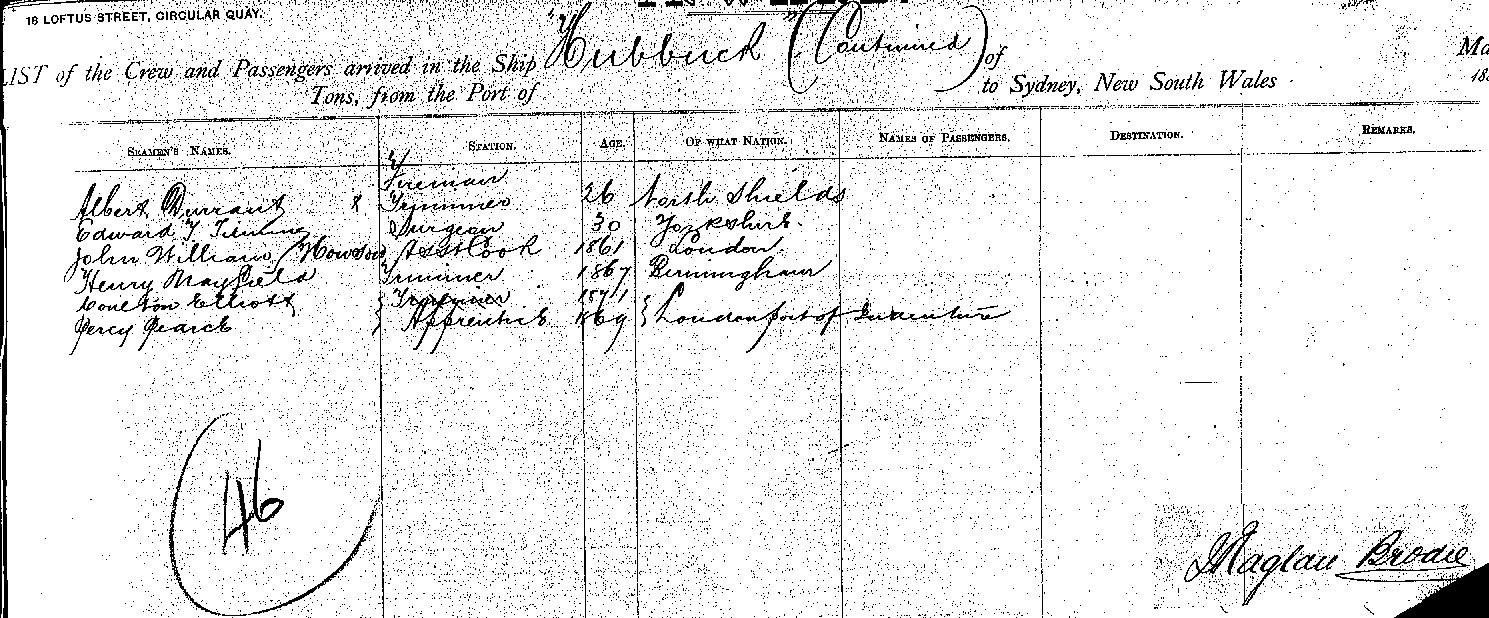 16 LOFTUS STREET, CIRCULAR QUAY.
LIST of the Crew and Passengers arrived in the Ship "Hubbuck" (Continued) of
Tons, from the Port of to Sydney, New South Wales
SEAMEN'S NAMES. STATION. AGE. OF WHAT NATION. NAMES OF PASSENGERS. DESTINATION. REMARKS.
Fireman
Albert Durrant x Trimmer 26 North Shields
Edward T. Surgeon 30 Yorkshire.
John William Howson Asst Cook 1861 London.
Henry Mayfield Trimmer 1867 Birmingham
Elliott Trimmer 1871
Percy Pearce Apprentice 1869 London port of Indenture
46
Maglan Brodie